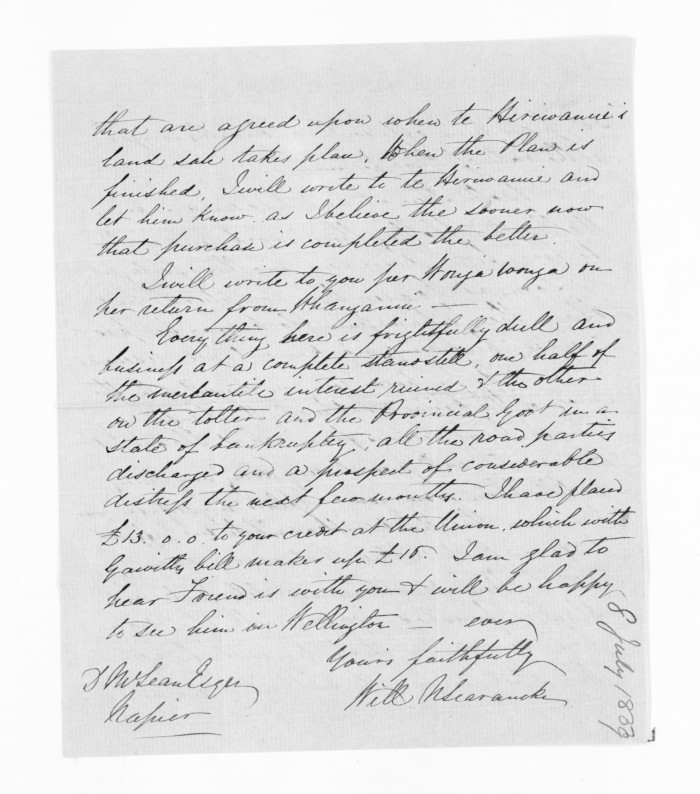 that are agreed upon when te Hiriwanui's
land sale takes place, When the Plan is
finished, I will write to te Hiriwanui and
let him know as I believe the sooner now
that purchase is completed the better.
I will write to you per Wonga wonga on
her return from Whanganui —
Everything here is frightfully dull and
business at a complete standstill, one half of
the mercantile interest ruined & the other
on the totter and the Provincial Govt in a
state of bankruptcy, all the road parties
discharged and a prospect of considerable
distress the next few months. I have placed
£13. 0. 0. to your credit at the Union, which with
bill makes up £15. I am glad to
hear Friend is with you & will be happy
to see him in Wellington — ever
Yours faithfully
Will N Searancke
D McLean Esqre
Napier
8 July 1859